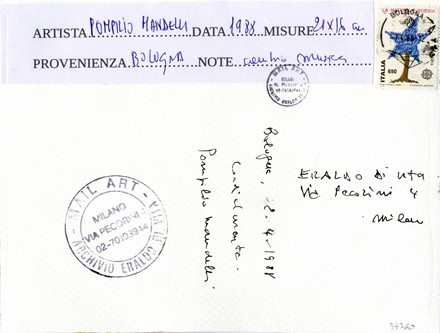 ARTISTA POMPILIO MANDELLI DATA 1988 MISURE 21X15 cm
PROVENIENZA BOLOGNA NOTE
BOLOGNA
ITALIA
650
MAIL ART
MILANO
Bologna, 2-4-1988
Cordialmente.
Pompilio Mandelli
ERALDO DI VITA
Via Pecorini 4
Milano
MAIL ART
MILANO
VIA PECORINI 4
02-7010
ARCHIVIO ERALDO DI VITA